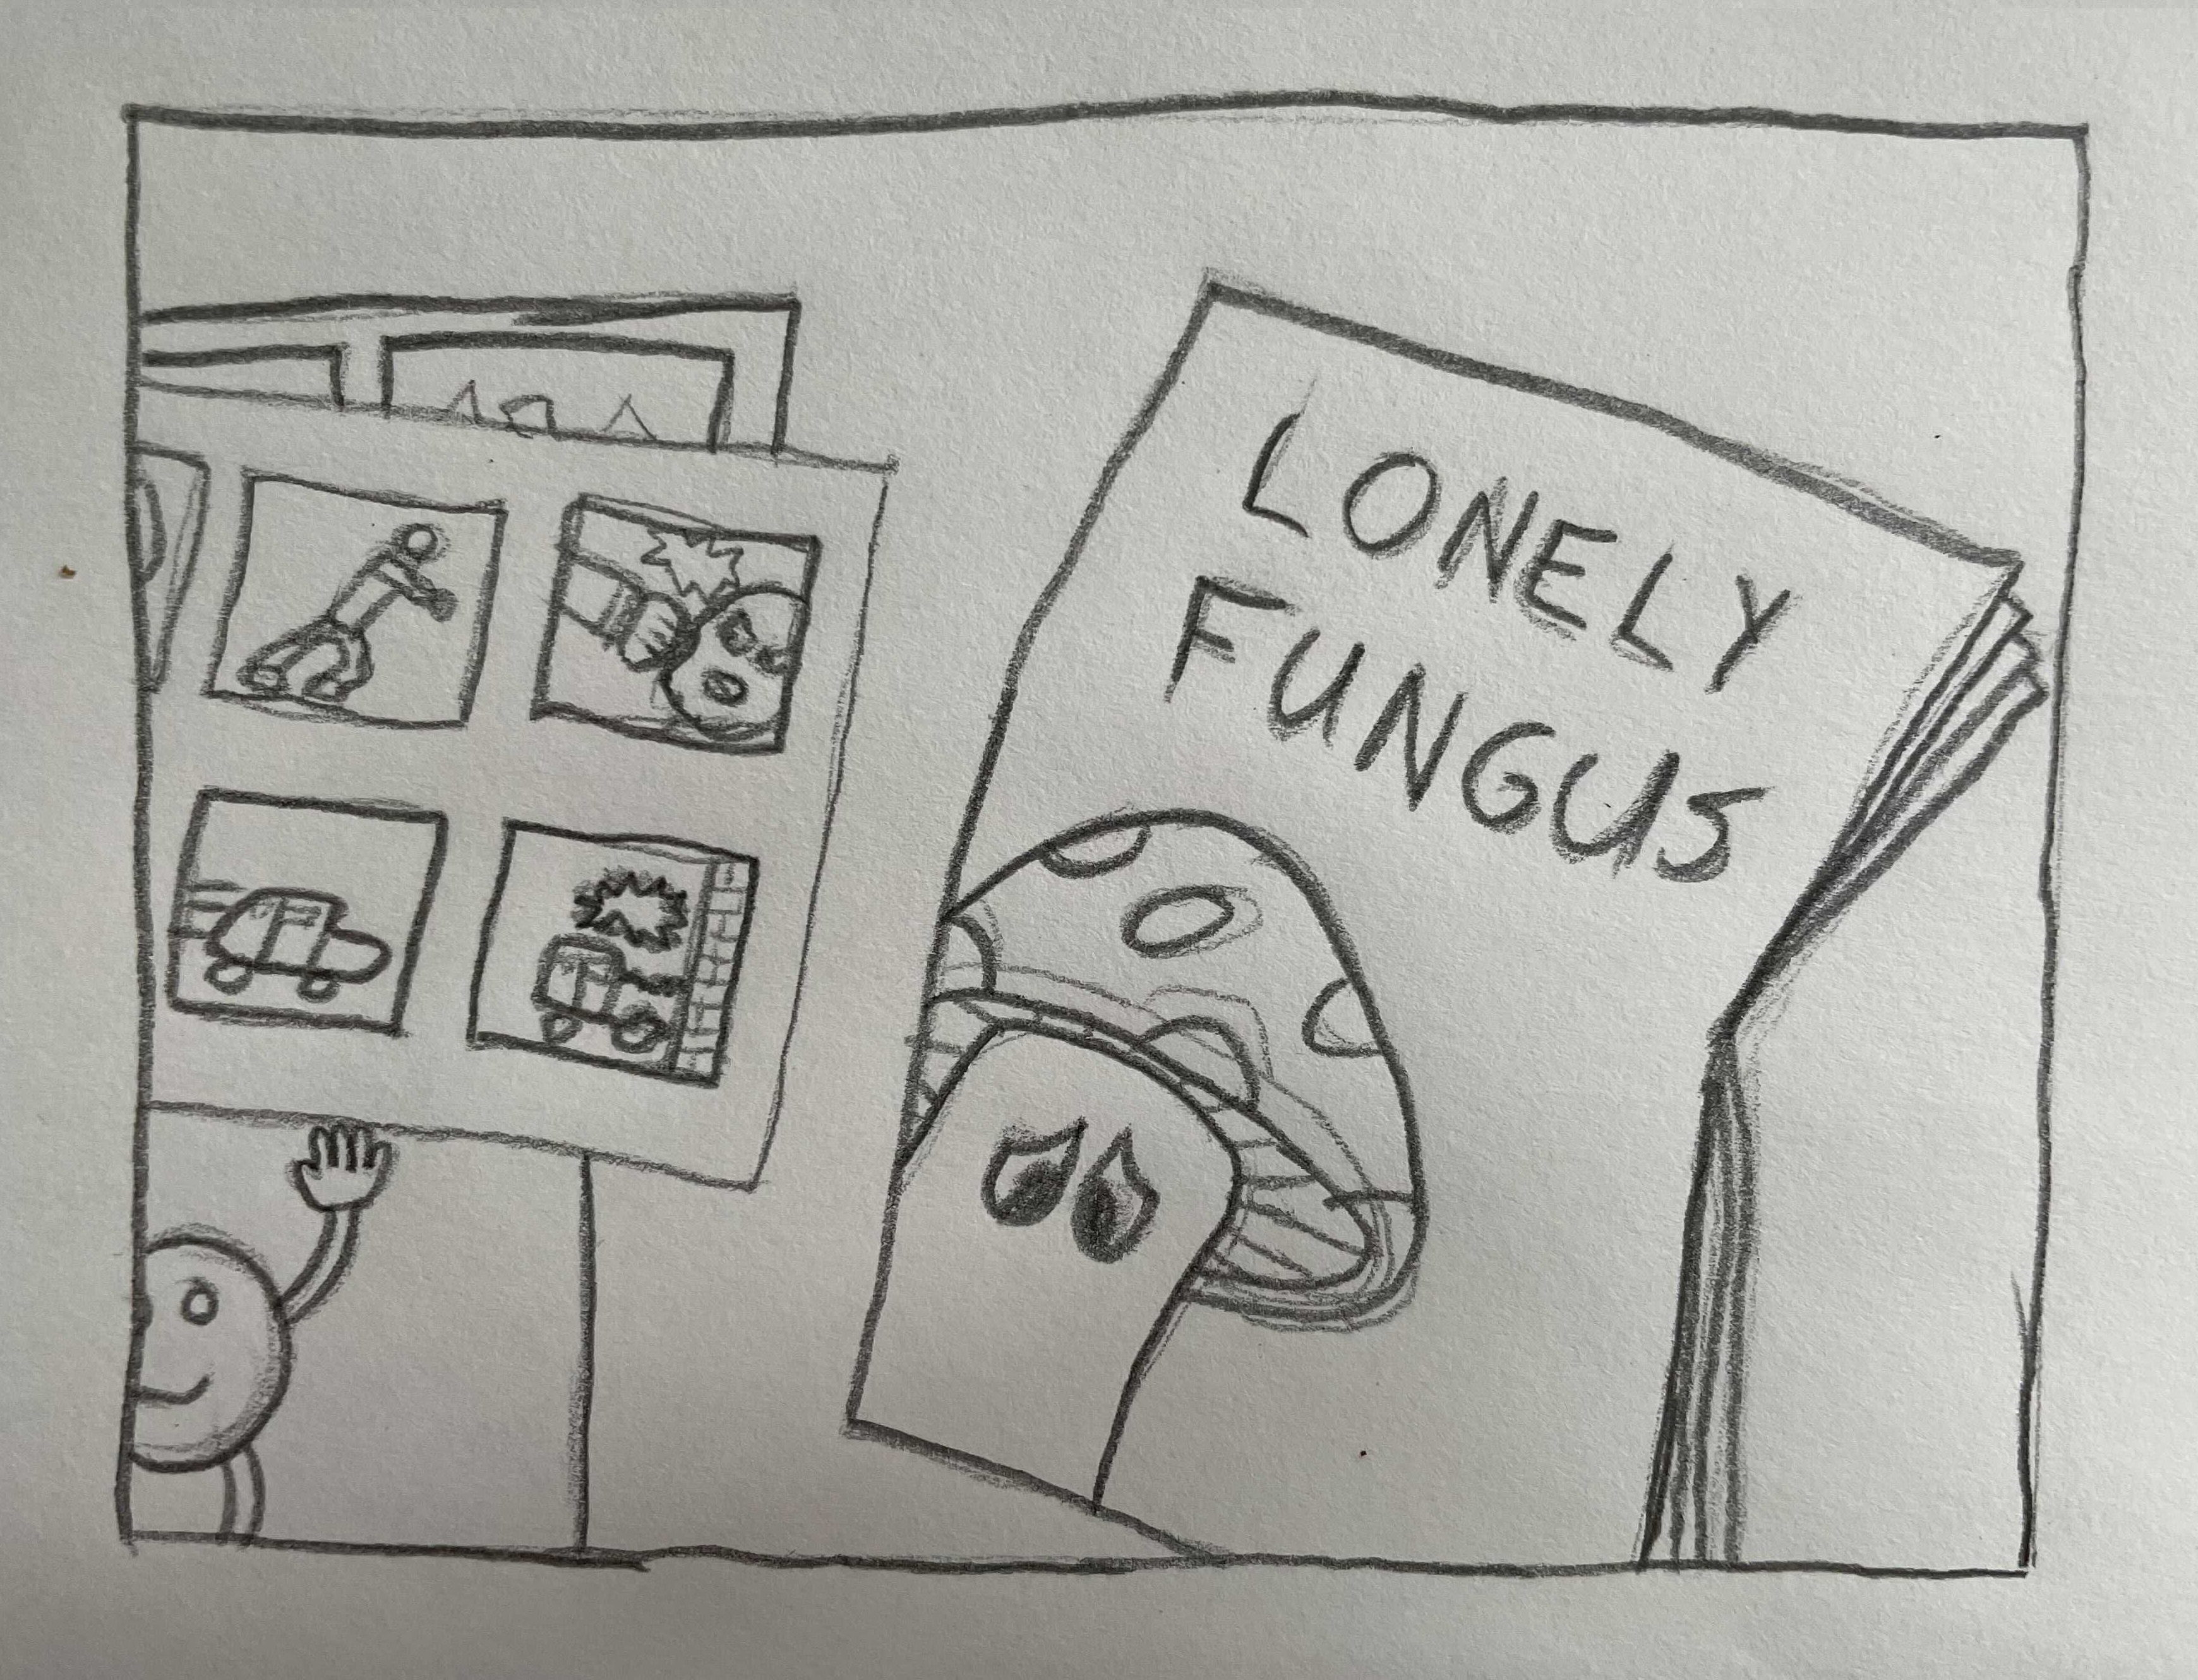 LONELY
FUNGUS